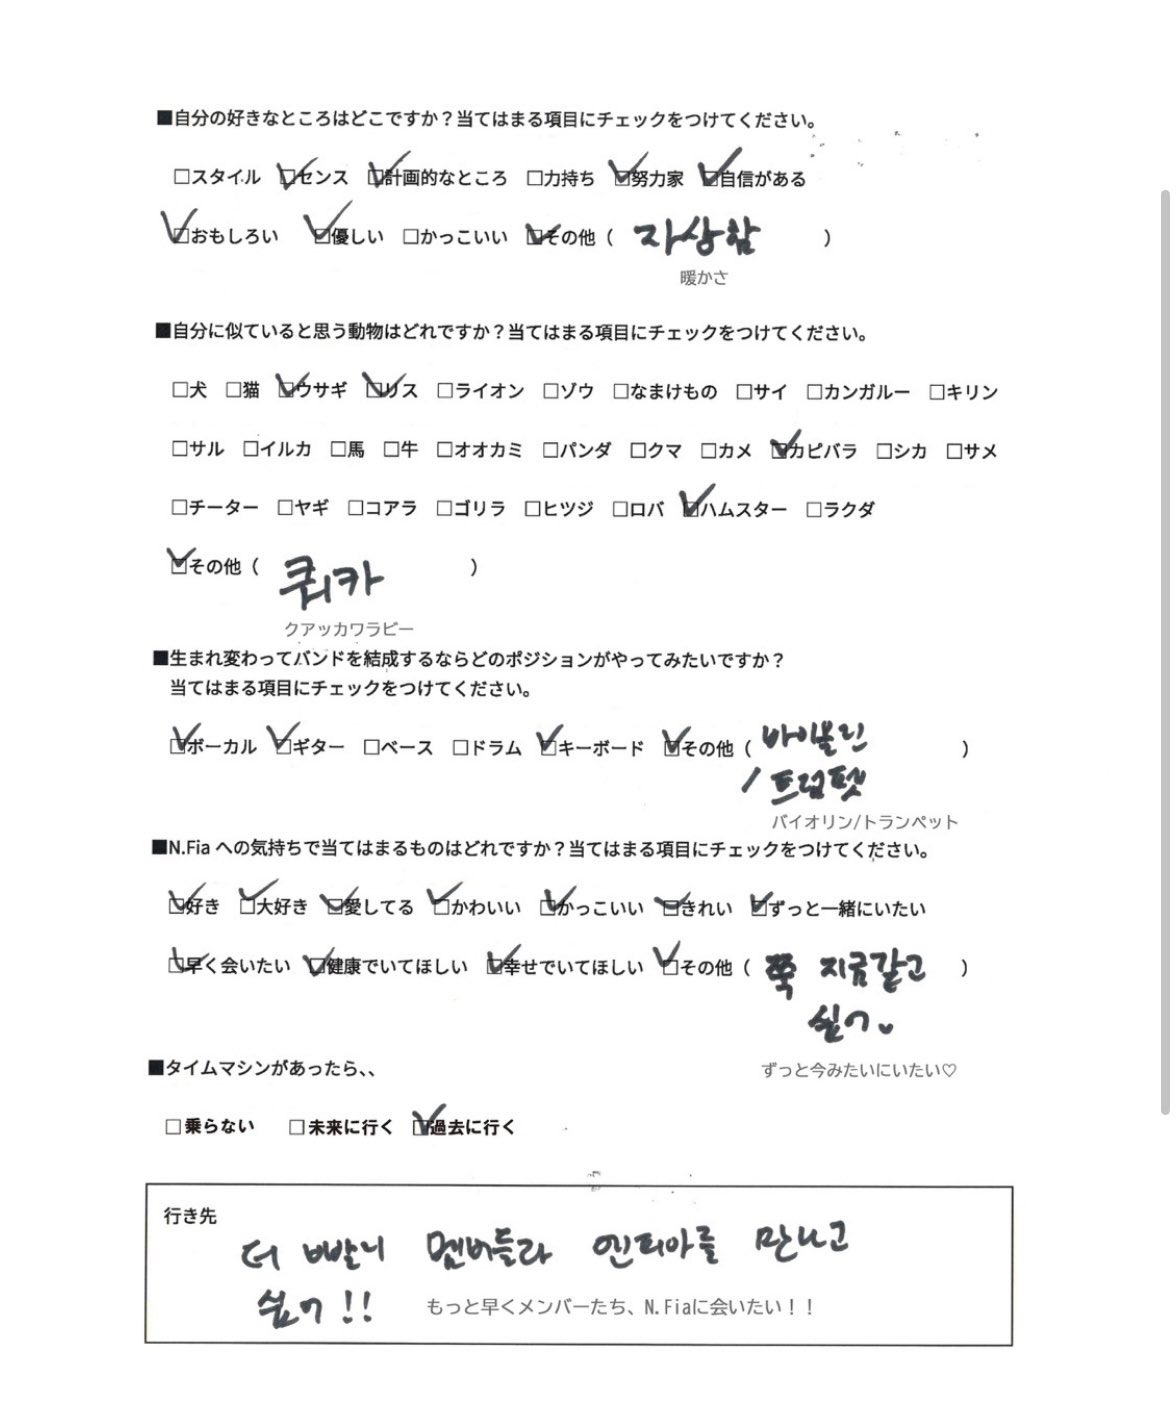 ■自分の好きなところはどこですか？当てはまる項目にチェックをつけてください。
□スタイル ☑センス ☑計画的なところ □力持ち ☑努力家 ☑自信がある
☑おもしろい ☑優しい □かっこいい ☑その他（ 자상함 ）
暖かさ
■自分に似ていると思う動物はどれですか？当てはまる項目にチェックをつけてください。
□犬 □猫 ☑ウサギ ☑リス □ライオン □ゾウ □なまけもの □サイ □カンガルー □キリン
□サル □イルカ □馬 □牛 □オオカミ □パンダ □クマ □カメ ☑カピバラ □シカ □サメ
□チーター □ヤギ □コアラ □ゴリラ □ヒツジ □ロバ ☑ハムスター □ラクダ
☑その他（ 쿼카 ）
クアッカワラビー
■生まれ変わってバンドを結成するならどのポジションがやってみたいですか？
当てはまる項目にチェックをつけてください。
☑ボーカル ☑ギター □ベース □ドラム ☑キーボード ☑その他（ 바이올린 ）
/ 트럼펫
バイオリン/トランペット
■N.Fia への気持ちで当てはまるものはどれですか？当てはまる項目にチェックをつけてください。
☑好き ☑大好き ☑愛してる ☑かわいい ☑かっこいい ☑きれい ☑ずっと一緒にいたい
☑早く会いたい ☑健康でいてほしい ☑幸せでいてほしい ☑その他（ 쭉 지금같고 ）
싶어♥
ずっと今みたいにいたい♡
■タイムマシンがあったら、、
□乗らない □未来に行く ☑過去に行く
行き先
더 빨리 멤버들과 엔피아를 만나고
싶어!!
もっと早くメンバーたち、N.Fiaに会いたい！！